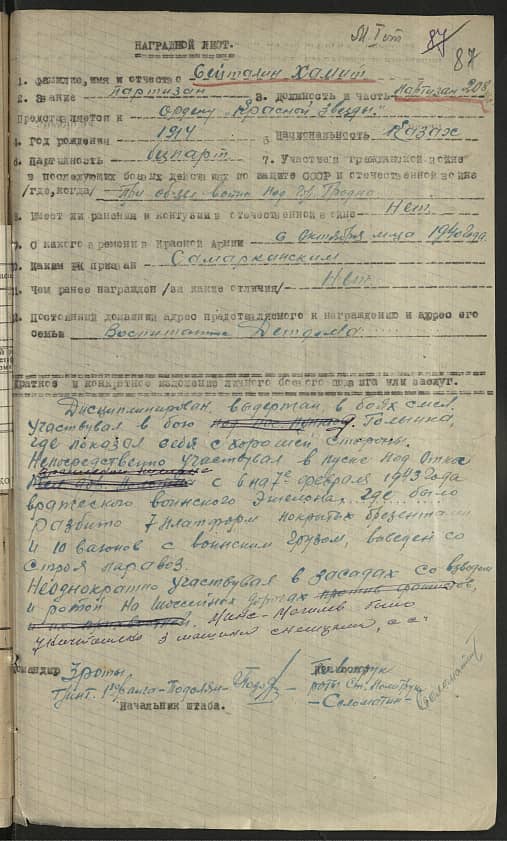 87
87
НАГРАДНОЙ ЛИСТ.
1. Фамилие, имя и отчество Сейталин Хамит
2. Звание партизан 3. Должность и часть партизан 208
Представляется к Ордену "Красной Звезды"
4. Год рождения 1914 5 Национальность Казах
6. Партийность б/парт 7. Участвия гражданской войне
в последующих боевых действиях по защите СССР и отечественной войне
/где, когда/
8. Имеет ли ранения и контузии в отечественной войне Нет
9. С какого времени в Красной Армии 6 октября м-ца 1940 года
10. Каким РК призван Самарканским
11. Чем ранее награжден /за какие отличия/ Нет
12. Постоянный домашний адрес представляемого к награждению и адрес его
семьи Воспитание Детдома
Краткое и конкретное изложение личного боевого подвига или заслуг.
Дисциплинирован, выдержан, в боях смел.
Участвовал в бою
где показал себя с хорошей стороны.
Непосредственно участвовал в пуске под откос
с 6 на 7е февраля 1943 года
вражеского воинского эшелона, где было
разбито 7 платформ покрытых брезентами
и 10 вагонов с воинским грузом, выведен со
строя паровоз.
Неоднократно участвовал в засадах со взводом
и ротой на шоссейных дорогах
Минск-Могилев было
3 машины с немцами,
Командир 3 роты Политрук
роты Ст. Политрук
-Соломатин-
Начальник штаба.